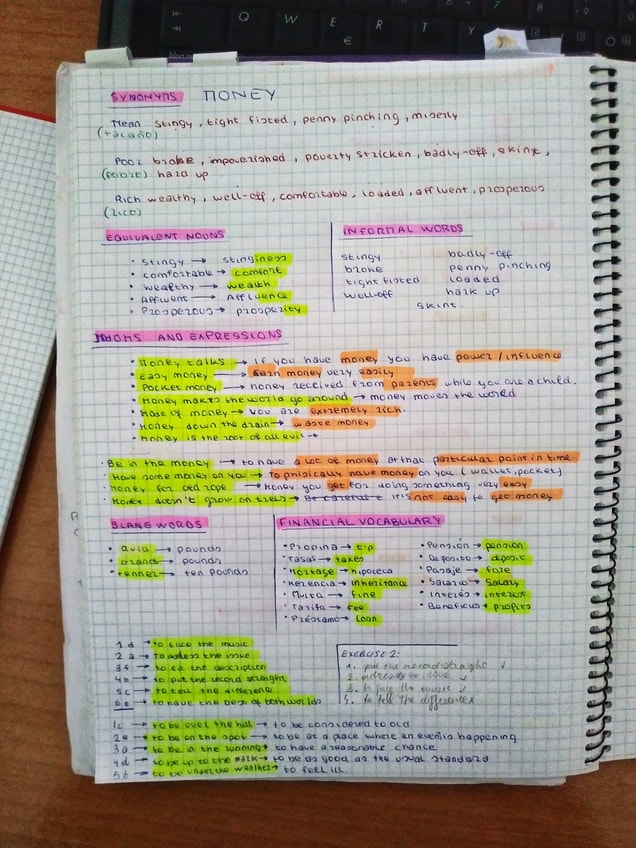 Q W E R T Y
€
SYNONYMS MONEY
Mean stingy, tight fisted, penny pinching, miserly
(tacaño)
Poor broke, impoverished, poverty stricken, badly-off, skint,
(pobre) hard up
Rich wealthy, well-off, comfortable, loaded, affluent, prosperous
(rico)
EQUIVALENT NOUNS
• stingy → stinginess
• comfortable → comfort
• wealthy → wealth
• Affluent → Affluence
• Prosperous → prosperity
INFORMAL WORDS
stingy badly-off
broke penny pinching
tight fisted loaded
well-off hark up
skint.
IDIOMS AND EXPRESSIONS
• Money talks → if you have money you have power/influence
• Easy money → Earn money very easily
• Pocket money → money received from parents while you are a child.
• Money makes the world go around → money moves the world
• Made of money → you are extremely rich.
• Money down the drain → waste money
• Money is the root of all evil →
• Be in the money → to have a lot of money at that particular point in time.
• Have some money on you → to phisically have money on you (wallet, pocket)
• Money for old rope → money you get for doing something very easy
• Money doesn't grow on trees → Be careful it is not easy to get money
SLANG WORDS
• → pounds
• Grand → pounds
• tenner → ten pounds
FINANCIAL VOCABULARY
• Propina → tip
• Tasas → taxes
• Mortage → hipoteca
• Herencia → inheritance
• Multa → fine
• Tarifa → fee
• Préstamo → loan
• Pensión → pension
• Deposito → deposit
• Pasaje → fare
• Salario → salary
• Interés → interest
• Beneficios → profits
1 d → to face the music
2 a → to address the issue
3 f → to fit the description
4 b → to put the record straight
5 c → to tell the difference
6 e → to have the best of both worlds
EXERCISE 2:
1. put the record straight ✓
2. address the issue ✓
3. to face the music ✓
4. to tell the difference
1c → to be over the hill → to be considered to old
2e → to be on the spot → to be at a place where an event is happening
3a → to be in the running → to have a reasonable chance
4d → to be up to the mark → to be as good as the usual standard
5b → to be under the weather → to feel ill.